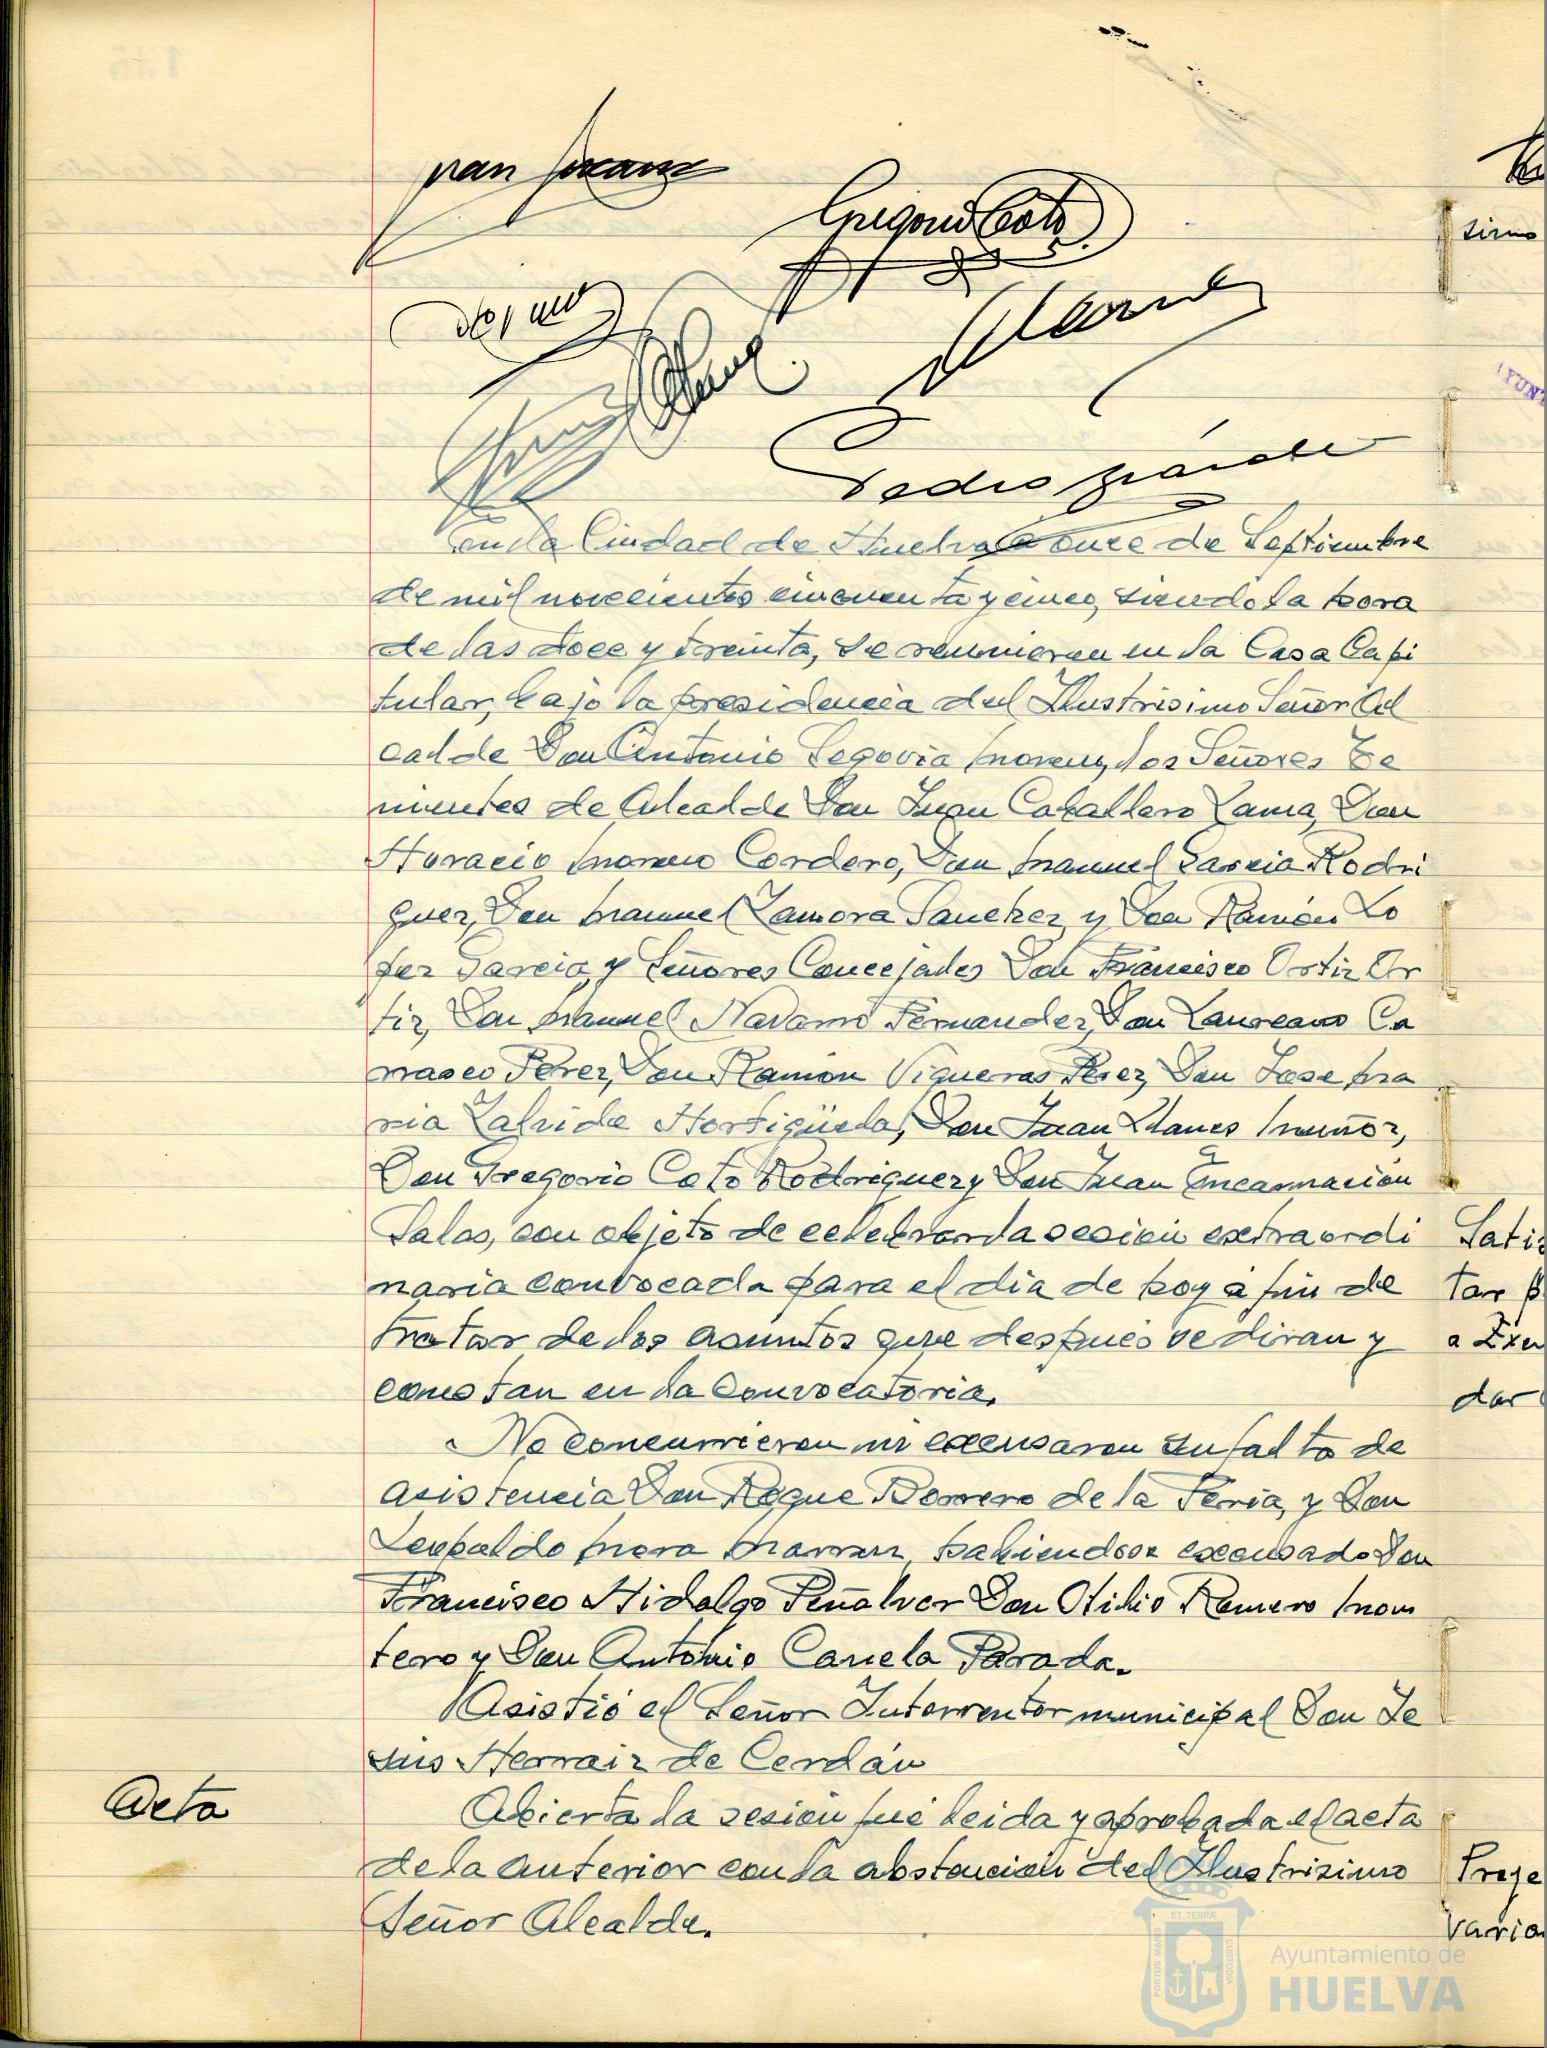 Gregorio Coto
Pedro
En la Ciudad de Huelva a once de Septiembre
de mil novecientos cincuenta y cinco, siendo la hora
de las doce y treinta, se reunieron en la Casa Capi
tular, bajo la presidencia del Ilustrisimo Señor Al
calde Don Antonio Segovia Moreno, los Señores Te
nientes de Alcalde Don Juan Caballero Lama, Don
Horacio Moreno Cordero, Don Manuel Garcia Rodri
guez, Don Manuel Zamora Sanchez, y Don Ramón Lo
pez Garcia, y Señores Concejales Don Francisco Ortiz Or
tiz, Don Manuel Navarro Fernandez, Don Laureano Ca
rrasco Perez, Don Ramon Vigueras Perez, Don Jose Ma
ria Zalvide Hortigüela, Don Juan Llanes Muñoz,
Don Gregorio Coto Rodriguez y Don Juan Encarnación
Salas, con objeto de celebrar la sesión extraordi
naria convocada para el dia de hoy a fin de
tratar de los asuntos que después se diran y
constan en la convocatoria.
No concurrieron ni excusaron su falta de
asistencia Don Roque Borrero de la Feria, y Don
Leopoldo Mora habiendose excusado Don
Francisco Hidalgo Peñalver Don Otilio Romero Mon
tero y Don Antonio Canela Parada.
Asistió el Señor Interventor municipal Don Je
sús Herraiz de Cerdán
Acta
Abierta la sesión fué leida y aprobada el acta
de la anterior con la abstencion del Ilustrisimo
Señor Alcalde.
simo
Satis
tar p
a Exn
dar
Proye
varia
PORTUS MARIS
ET TERRÆ
CUSTODIA
Ayuntamiento de
HUELVA